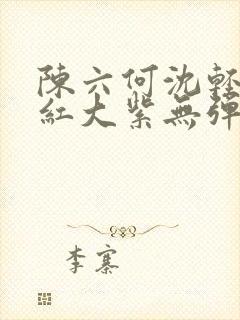 陳六何沈輕
紅大紫無彈
李寨